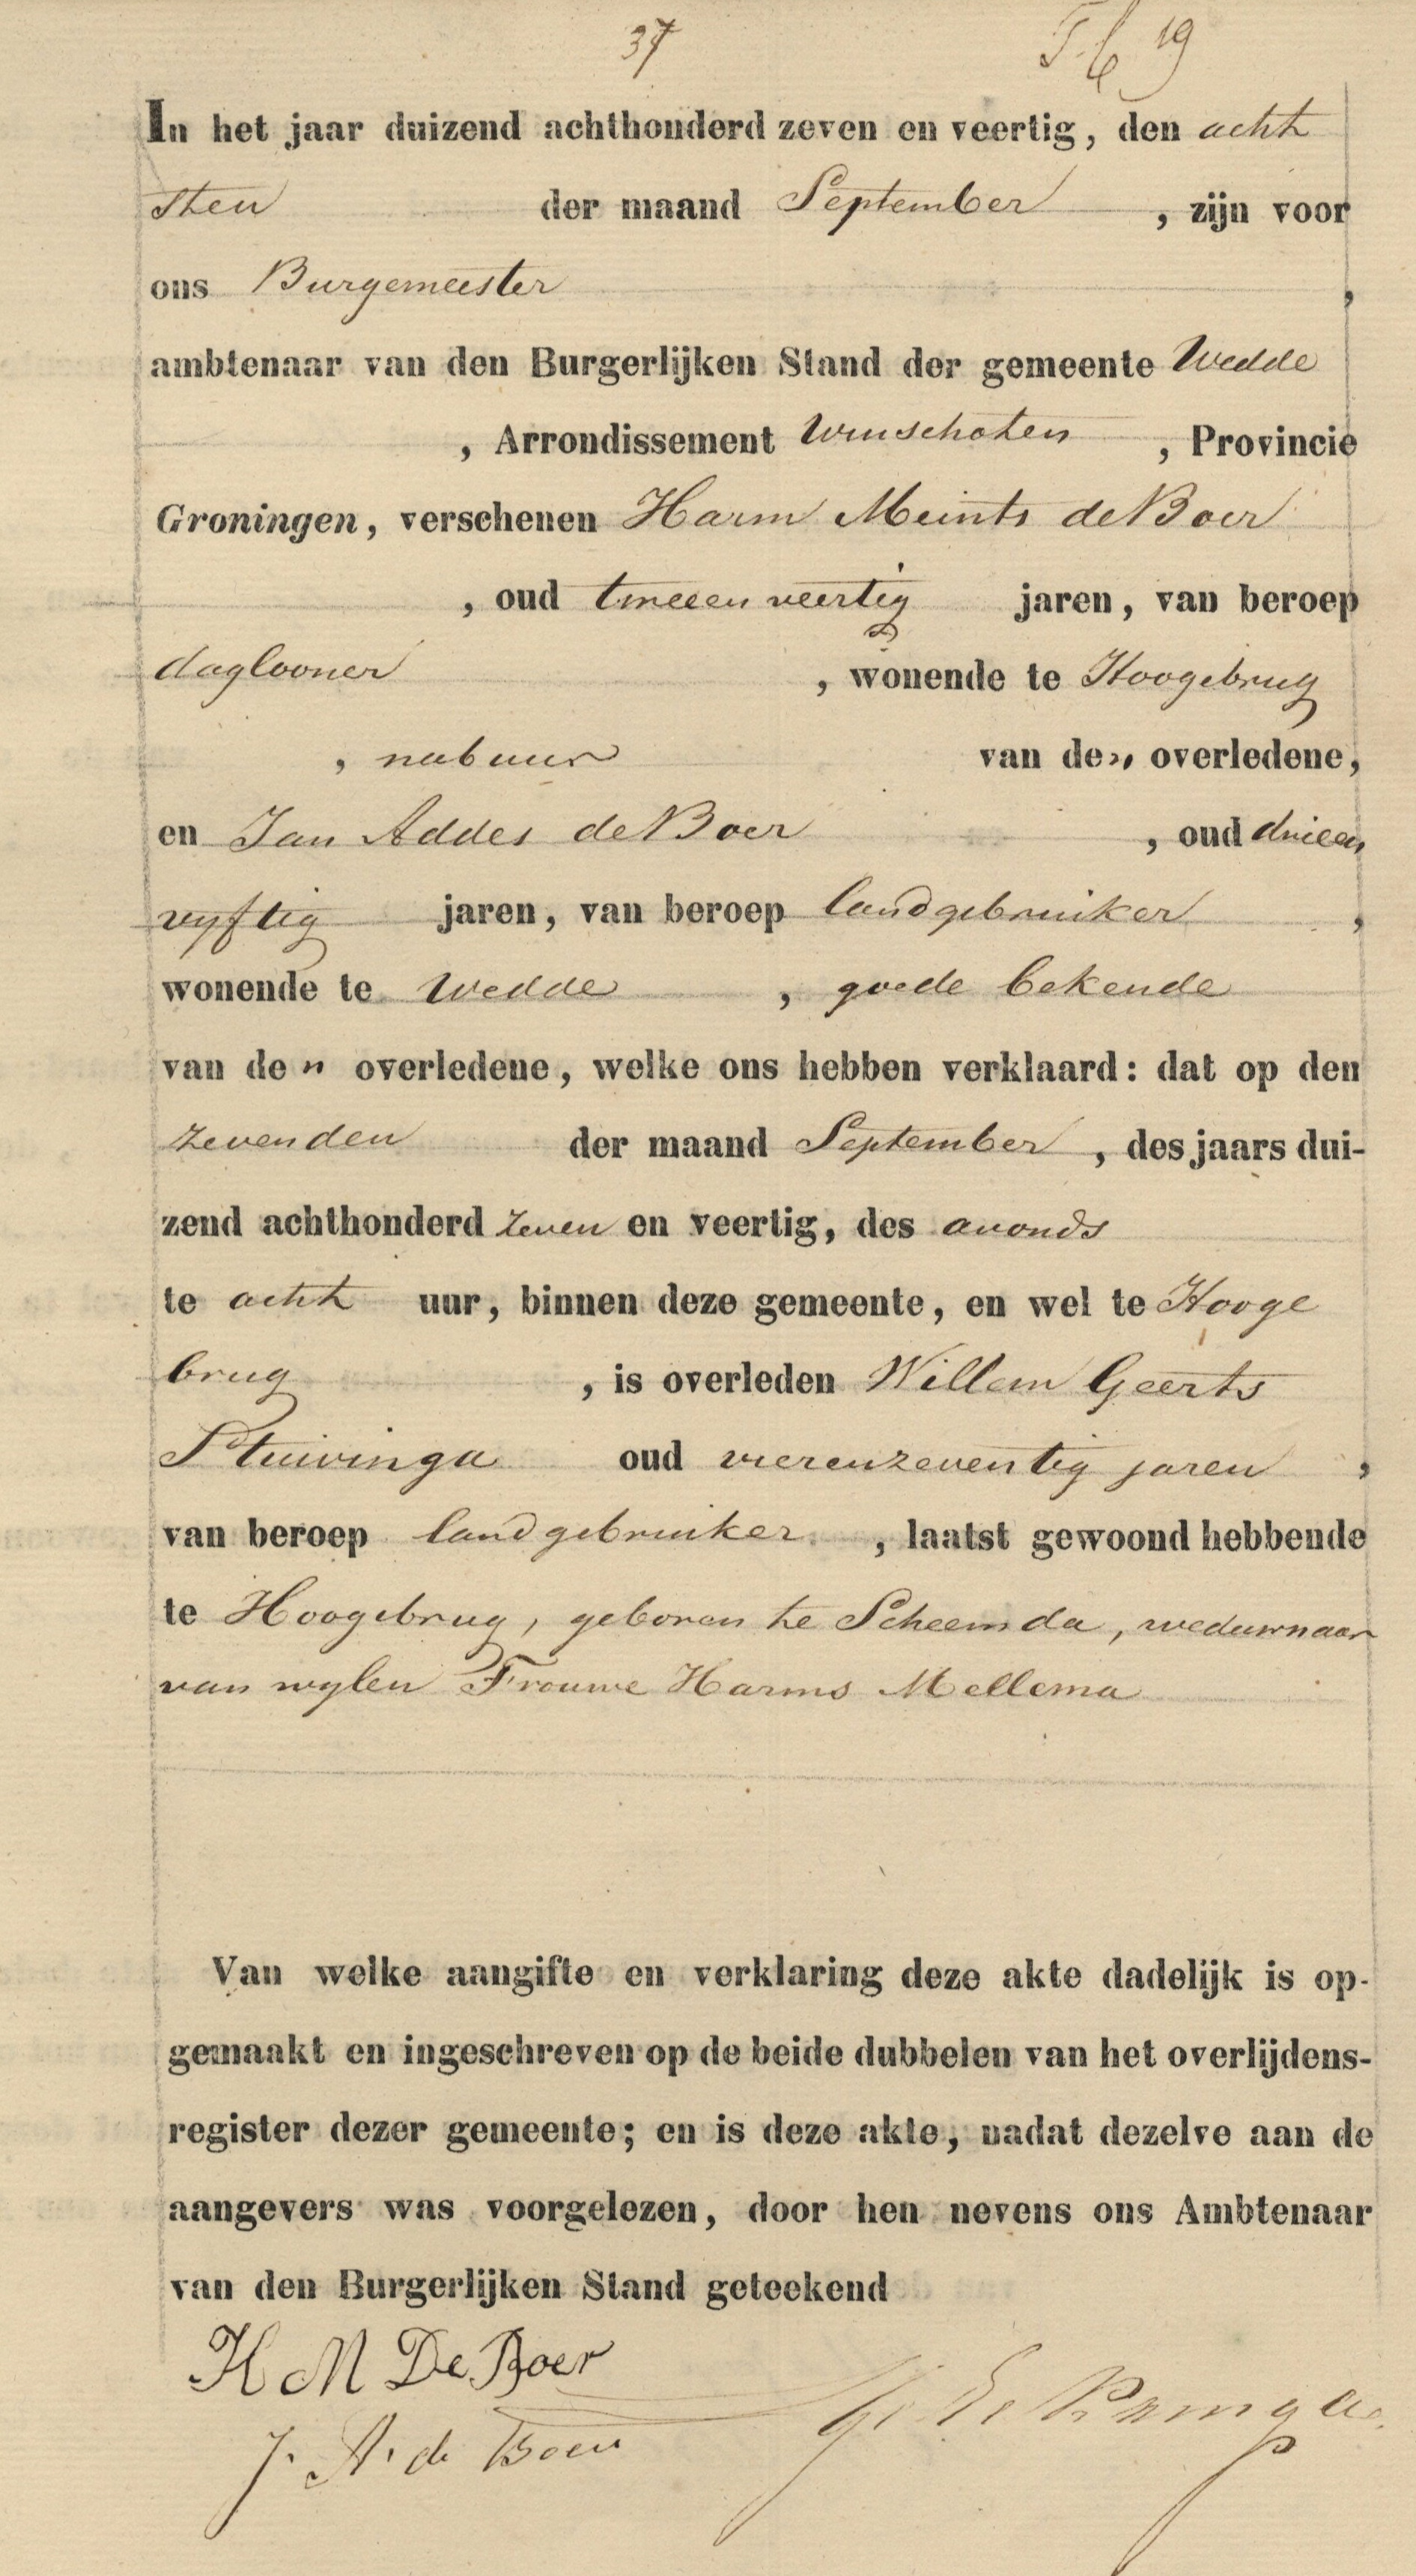 37 19
In het jaar duizend achthonderd zeven en veertig, den acht
sten der maand September, zijn voor
ons Burgemeester,
ambtenaar van den Burgerlijken Stand der gemeente Wedde
, Arrondissement Winschoten, Provincie
Groningen, verschenen Harm Meints de Boer
, oud tweeen veertig jaren, van beroep
daglooner, wonende te Hoogebrug
, nabuur van den overledene,
en Jan Addes de Boer, oud drieen
vyftig jaren, van beroep landgebruiker,
wonende te Wedde, goede bekende
van den overledene, welke ons hebben verklaard: dat op den
zevenden der maand September, des jaars dui-
zend achthonderd zeven en veertig, des avonds
te acht uur, binnen deze gemeente, en wel te Hooge
brug, is overleden Willem Geerts
Stuivinga oud vierenzeventig jaren,
van beroep landgebruiker, laatst gewoond hebbende
te Hoogebrug, geboren te Scheemda, weduwnaar
van wylen Frouwe Harms Mellema
Van welke aangifte en verklaring deze akte dadelijk is op-
gemaakt en ingeschreven op de beide dubbelen van het overlijdens-
register dezer gemeente; en is deze akte, nadat dezelve aan de
aangevers was voorgelezen, door hen nevens ons Ambtenaar
van den Burgerlijken Stand geteekend
H M De Boer
J. A. de Boer